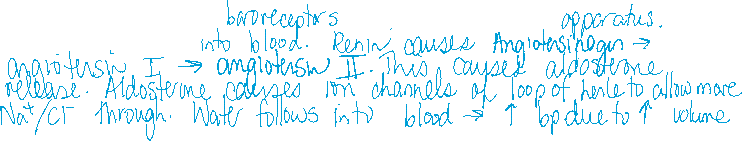 baroreceptors apparatus.
into blood. Renin causes Angiotensinogen →
angiotensin I → angiotensin II. This causes aldosterone
release. Aldosterone causes ion channels of loop of henle to allow more
Na⁺/Cl⁻ through. Water follows into blood → ↑ bp due to ↑ volume